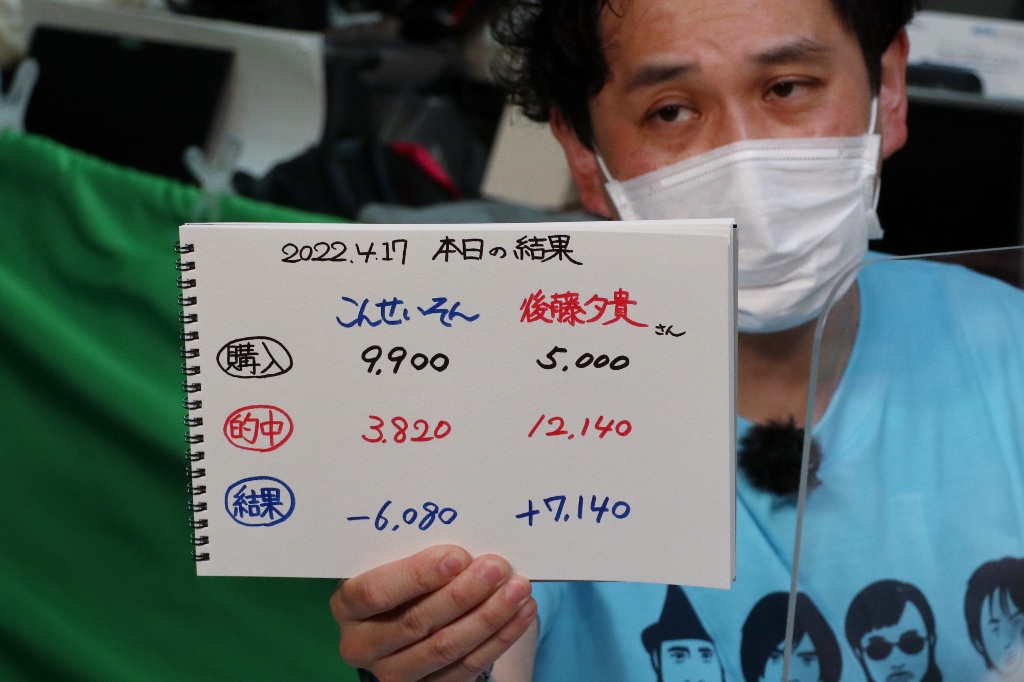 2022.4.17 本日の結果
こんせいそん 後藤夕貴さん
購入 9.900 5.000
的中 3.820 12.140
結果 -6.080 +7.140